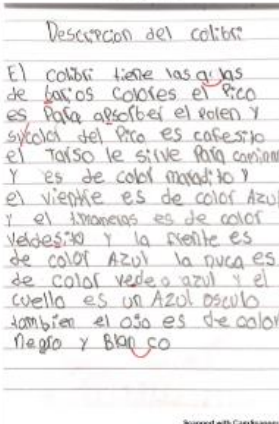 Descripcion del colibri
El colibri tiene las alas
de barios colores el Pico
es Para absorber el polen y
sycolor del Pico es cafesito
el Tarso le sirve Para caminar
y es de color moradito y
el vientre es de color Azul
y el timoneras es de color
verdesito y la frente es
de color Azul la nuca es
de color vede o azul y el
cuello es un Azul osculo
tambien el ojo es de color
negro y Blan co
Scanned with CamScanner